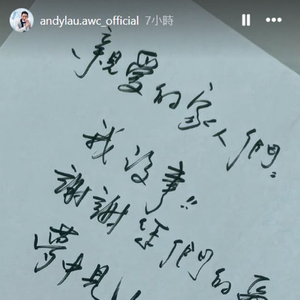 andylau.awc_official 7小時
親愛的家人們：
我沒事!!
謝謝你們的愛
夢中見